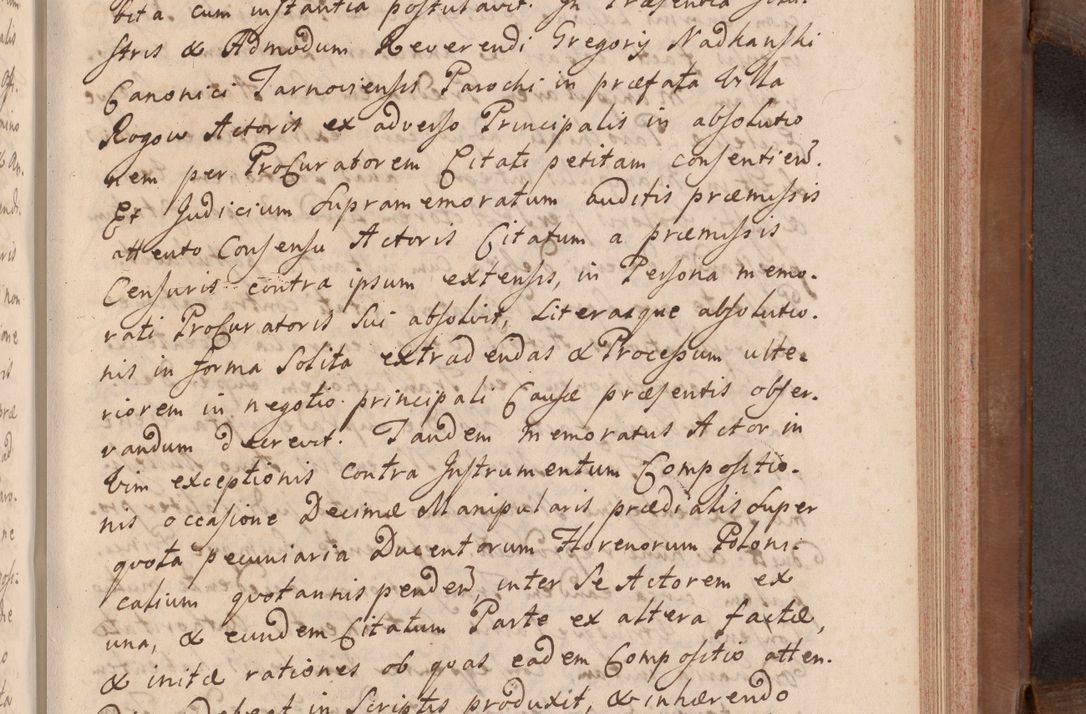 bita cum instantia postulavit. In Præsentia Illu-
stris & Admodum Reverendi Gregorij Nadhanski
Canonici Tarnoviensis Parochi in præfata Villa
Rogow Actoris ex adverso Principalis in absolutio
nem per Procuratorem Citati petitam consentien̄.
Et Judicium supramemoratum auditis præmissis
attento Consensu Actoris Citatum a præmissis
Censuris contra ipsum extensis, in Persona memo-
rati Procuratoris sui absolvit, Literasque absolutio-
nis in forma solita extradendas & Processum ulte-
riorem in negotio principali Causæ præsentis obser-
vandum decrevit. Tandem memoratus Actor in
vim exceptionis contra Instrumentum Compositio-
nis occasione Decimæ Manipularis prædialis super
quota pecuniaria Ducentorum Florenorum Poloni-
calium quotannis penden̄, inter se Actorem ex
una, & eundem Citatum Parte ex altera factæ,
& initæ rationes ob quas eadem Compositio atten-
debet in Scriptis produxit, & inhærendo